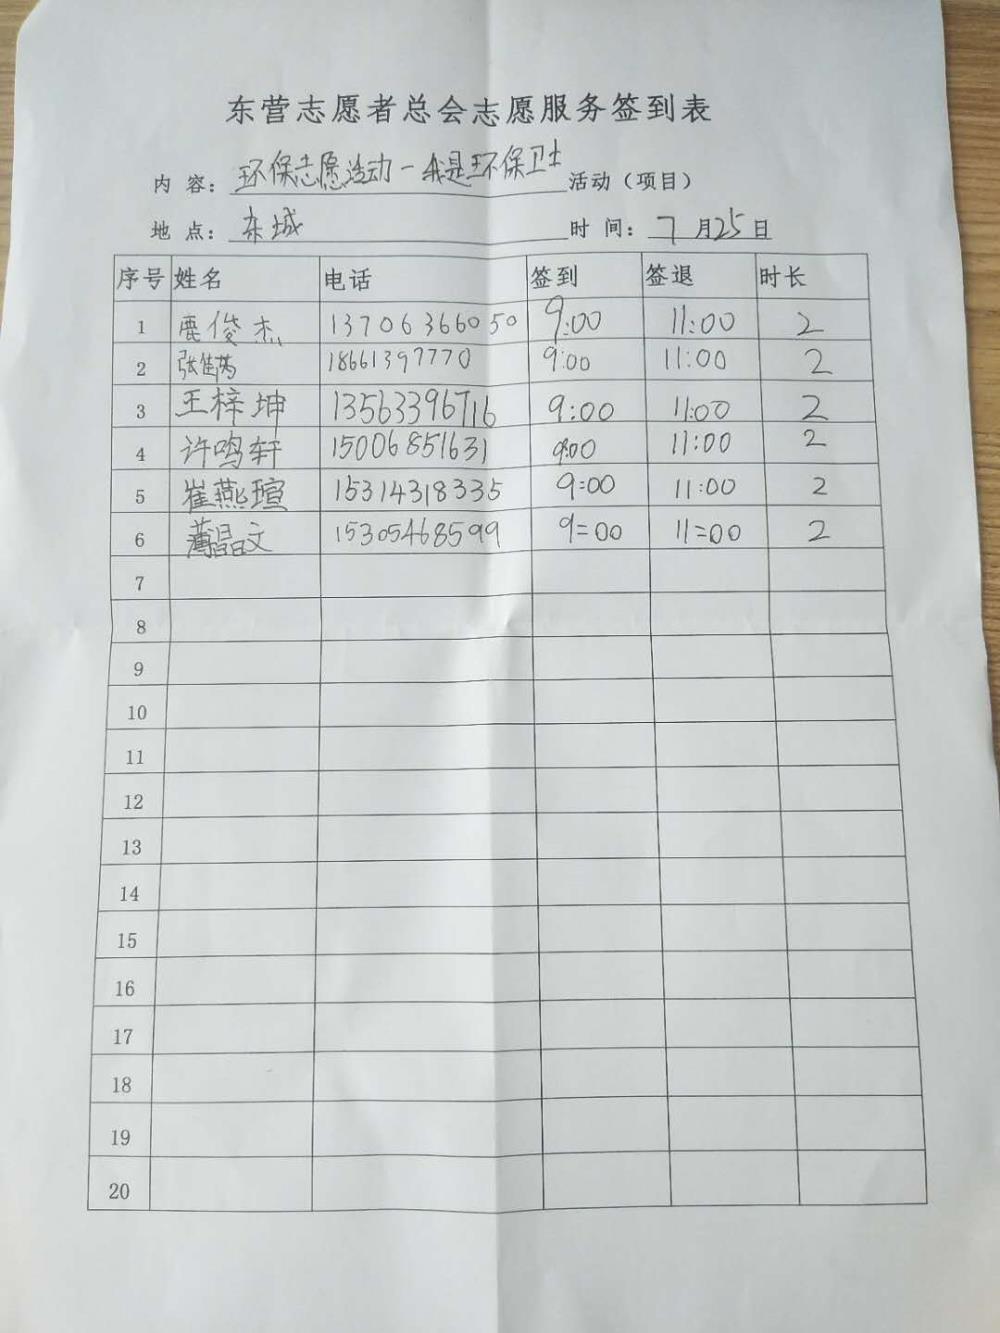 东营志愿者总会志愿服务签到表
内 容：环保志愿活动－我是环保卫士 活动（项目）
地 点：东城 时 间：7月25日
序号 姓名 电话 签到 签退 时长
1 鹿俊杰 13706366050 9:00 11:00 2
2 张 18661397770 9:00 11:00 2
3 王梓坤 13563396716 9:00 11:00 2
4 许鸣轩 15006851631 9:00 11:00 2
5 崔燕瑄 15314318335 9:00 11:00 2
6 文 15305468599 9=00 11=00 2
7
8
9
10
11
12
13
14
15
16
17
18
19
20